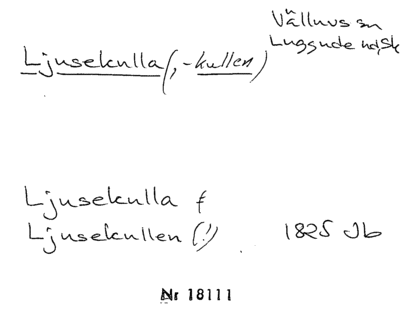 Ljusekulla (, -kullen)
Välluvs sn
Luggude hd, Sk
Ljusekulla f
Ljusekullen (!)
1825 Jb
Nr 18111